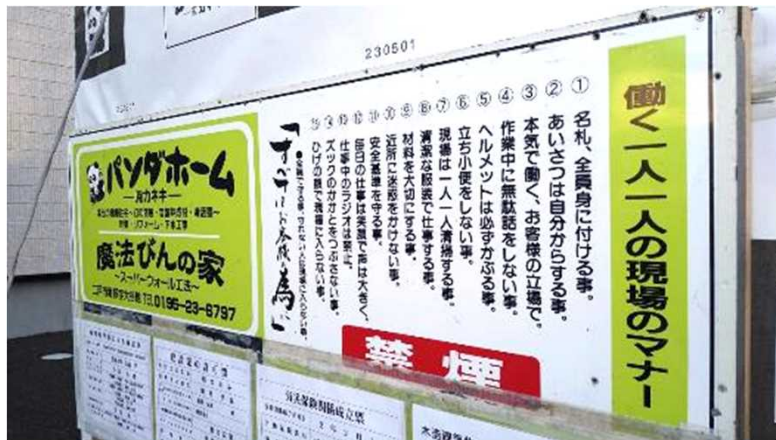 230501
働く一人一人の現場のマナー
① 名札、全員身に付ける事。
② あいさつは自分からする事。
③ 本気で働く、お客様の立場で。
④ 作業中に無駄話をしない事。
⑤ ヘルメットは必ずかぶる事。
⑥ 立ち小便をしない事。
⑦ 現場は一人一人清掃する事。
⑧ 清潔な服装で仕事する事。
⑨ 材料を大切にする事。
⑩ 近所に迷惑をかけない事。
⑪ 安全基準を守る事。
⑫ 毎日の仕事は笑顔で声は大きく。
⑬ 仕事中のラジオは禁止。
⑭ ズックのかかとをつぶさない事。
⑮ ひげの顔で現場に入らない事。
「すべてはお客様の為に」
禁煙
パンダホーム
魔法びんの家
〜スーパーウォール工法〜
TEL.0195-23-6797
労災保険関係成立票